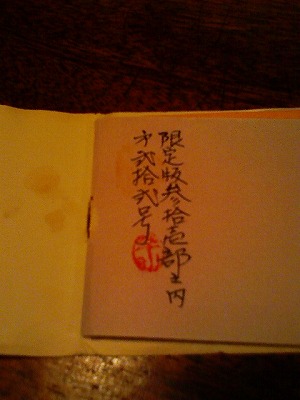 限定版参拾壱部之内
第弐拾弐号